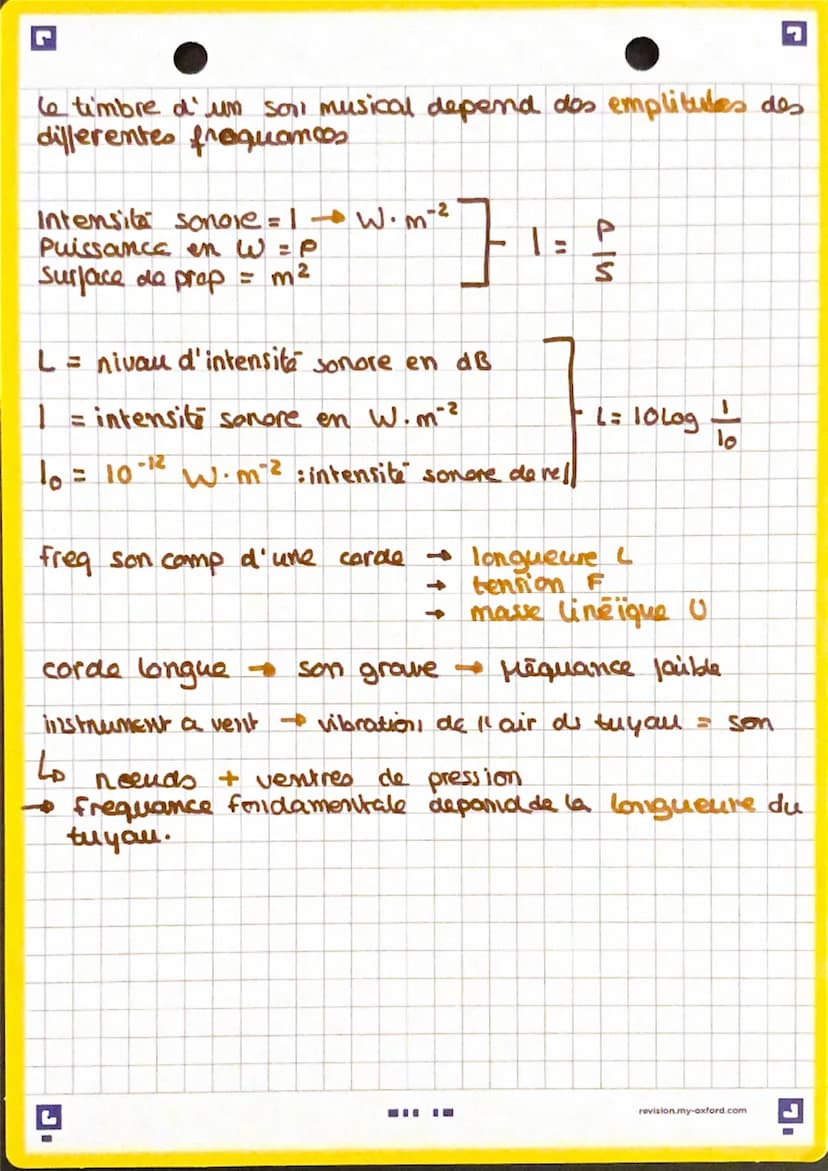 le timbre d'un son musical depend des emplitudes des
differentes frequances
Intensité sonore = I → W·m⁻²
Puissance en W = P
Surface de prop = m²
I = P/S
L = nivau d'intensité sonore en dB
I = intensité sonore en W.m⁻²
I₀ = 10⁻¹² W·m⁻² : intensité sonore de ref
L = 10 Log I/I₀
freq son comp d'une corde → longueure L
→ tension F
→ masse linéïque U
corde longue → son grave → fréquance faible
instrument a vent → vibration de l'air du tuyau = son
↳ noeuds + ventres de pression
→ frequance fondamentale depend de la longueure du
tuyau.
revision.my-oxford.com